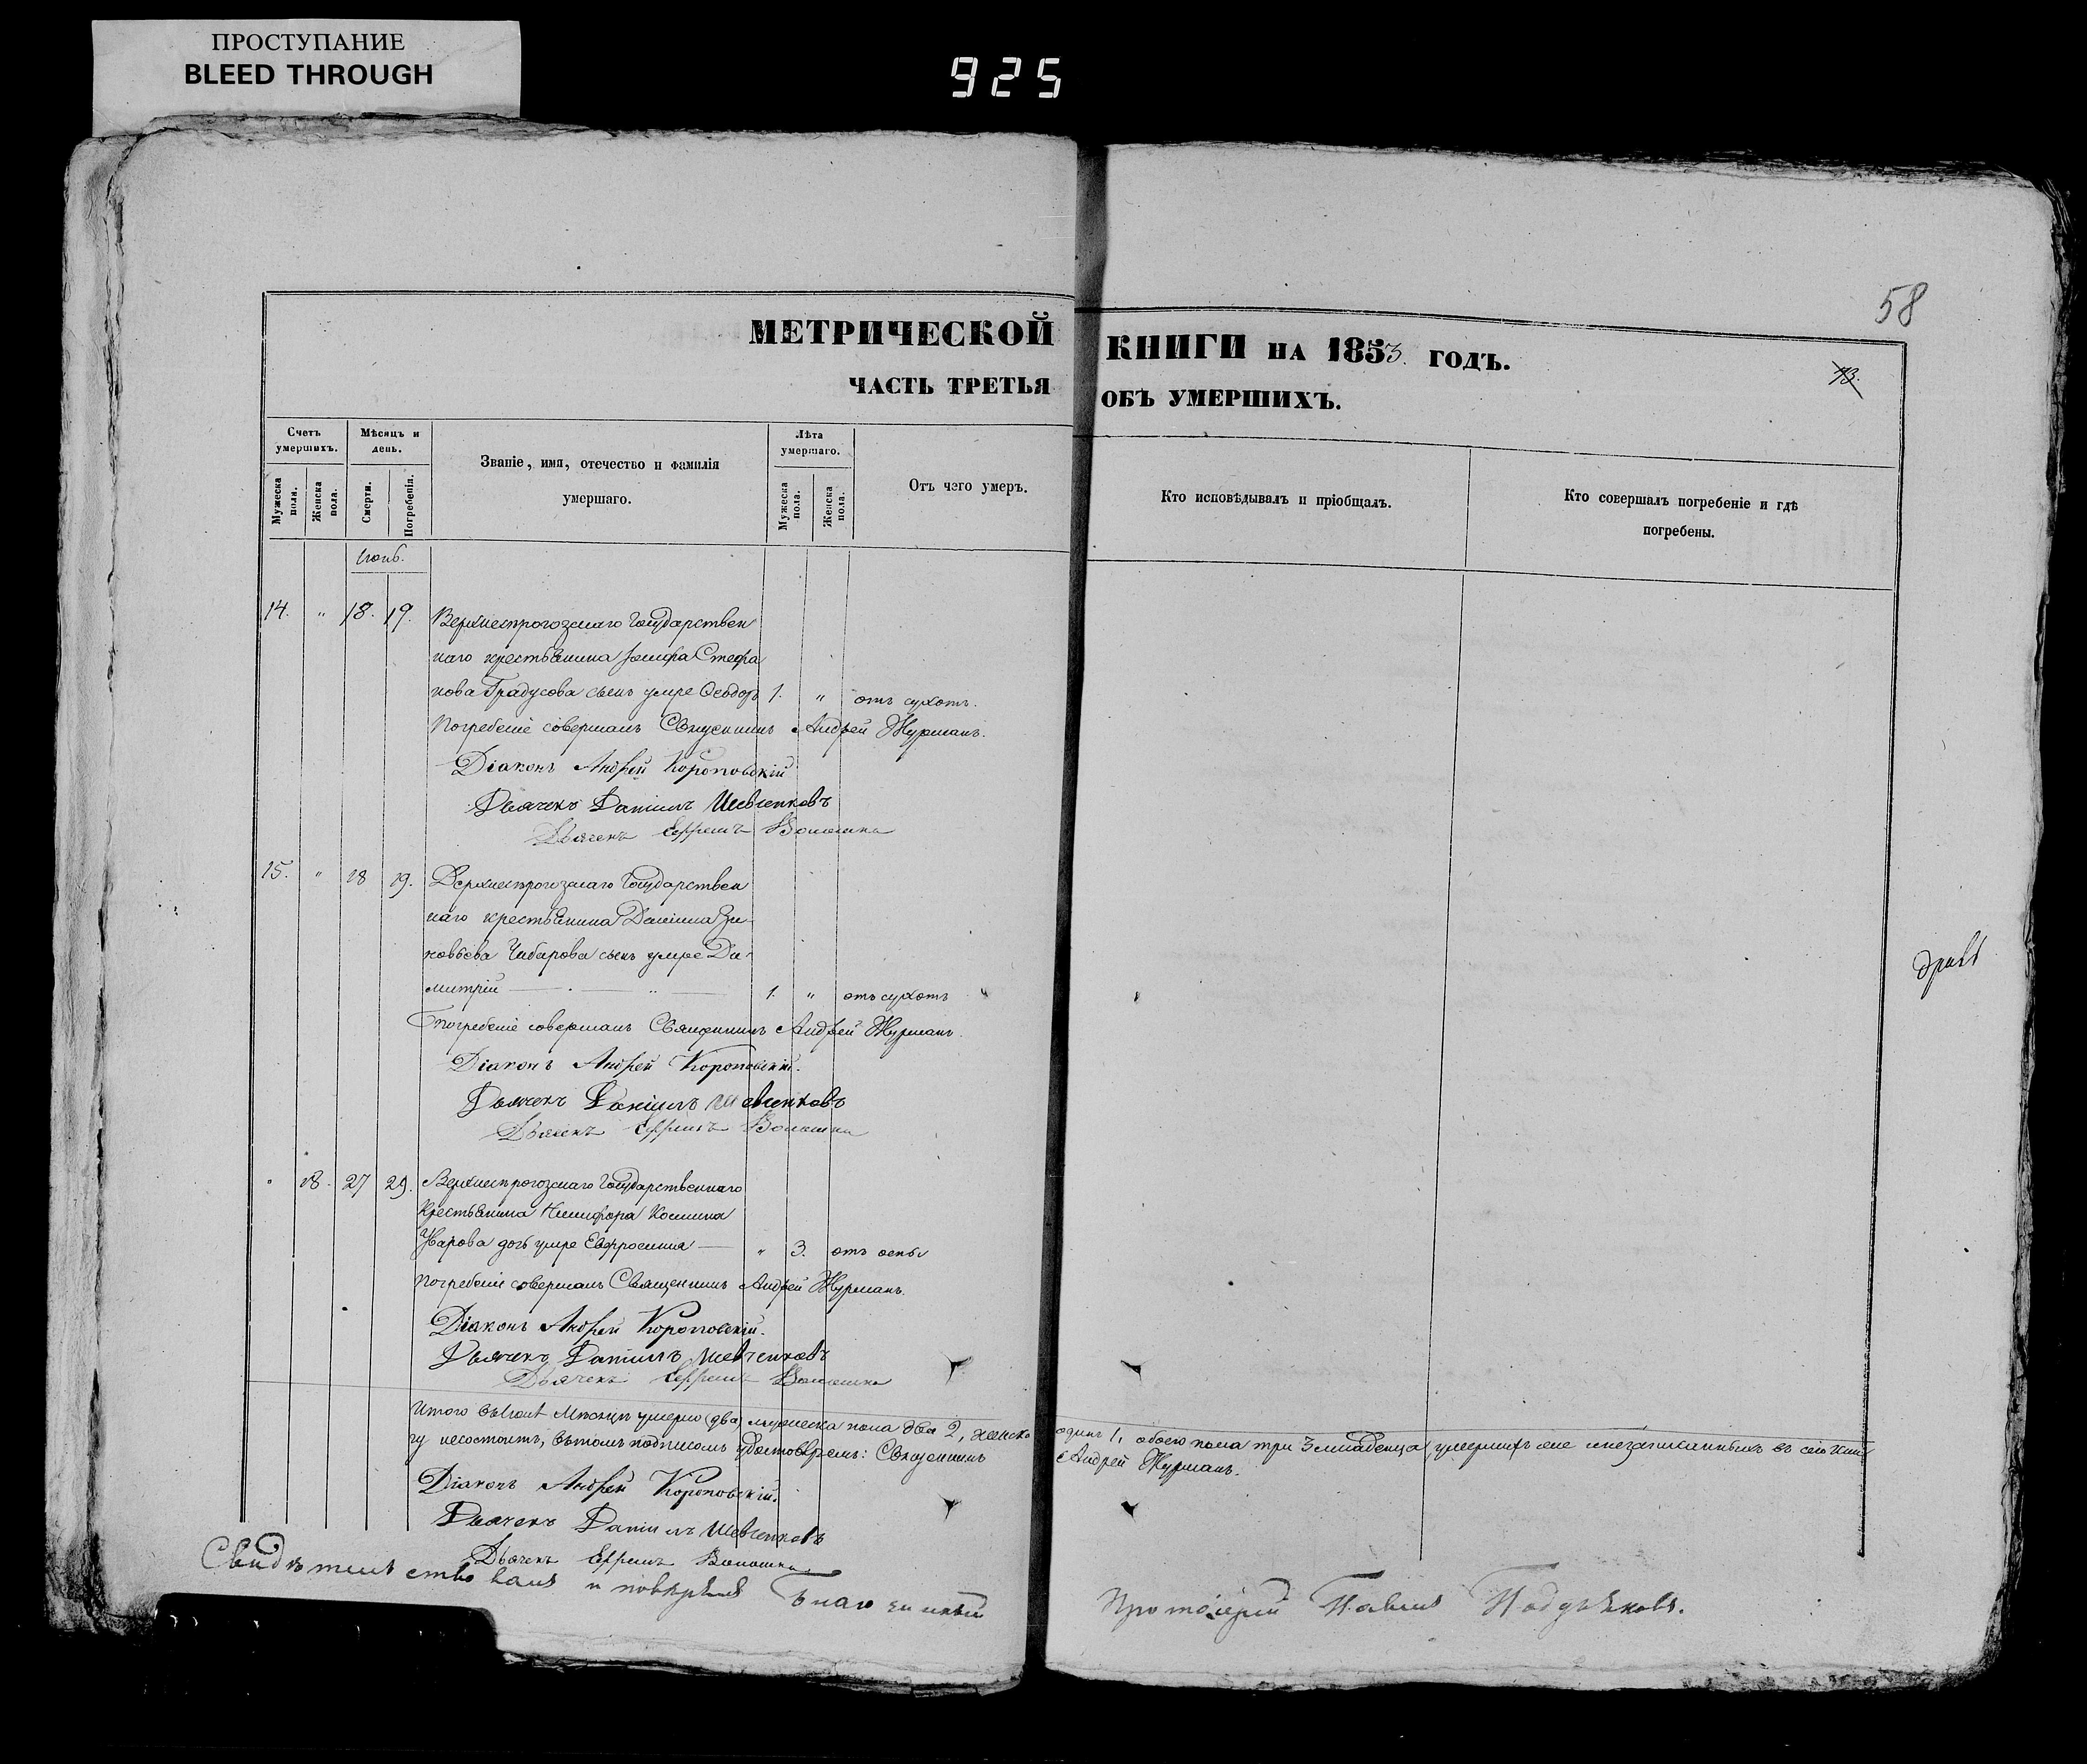 ПРОСТУПАНИЕ
BLEED THROUGH
925
58
МЕТРИЧЕСКОЙ КНИГИ НА 1853. ГОДЪ.
73.
ЧАСТЬ ТРЕТЬЯ ОБЪ УМЕРШИХЪ.
Счетъ умершихъ.
Мужеска пола.
Женска пола.
Мѣсяцъ и день.
Смерти.
Погребенія.
Званіе, имя, отечество и фамилія
умершаго.
Лѣта умершаго.
Мужеска пола.
Женска пола.
Отъ чего умеръ.
Кто исповѣдывалъ и пріобщалъ.
Кто совершалъ погребеніе и гдѣ
погребены.
14. " 18. 19. Верхнерогозскаго Государствен
наго крестьянина Іосифа Стефа
нова Градусова сынъ умре Ѳеодоръ 1. " отъ сухотъ.
Погребеніе совершалъ Священникъ Андрей Журманъ.
Діаконъ Андрей Короповскій
Дьячекъ Даніилъ Шевченковъ
Дьячекъ Ефремъ Волошинъ
15. " 18 19. Верхнерогозскаго Государствен
наго крестьянина Даніила Зи-
новьева Чибарова сынъ умре Ди-
митрій 1. " отъ сухотъ
Погребеніе совершалъ Священникъ Андрей Журманъ.
Діаконъ Андрей Короповскій.
Дьячекъ Даніилъ Шевченковъ
Дьячекъ Ефремъ Волошинъ
" 18. 27 29. Верхнерогозскаго Государственнаго
Крестьянина Никифора Космина
Уварова дочь умре Евфросинія " 3. отъ оспы
Погребеніе совершалъ Священникъ Андрей Журманъ.
Діаконъ Андрей Короповскій.
Дьячекъ Даніилъ Шевченковъ
Дьячекъ Ефремъ Волошинъ
Итого мѣсяцѣ умерло (два) мужеска пола два 2, женска одинъ 1, обоего пола три 3 младенца, умершихъ въ сію кни
гу несостоитъ, въ томъ подписомъ удостовѣряемъ: Священникъ Андрей Журманъ.
Діаконъ Андрей Короповскій.
Дьячекъ Даніилъ Шевченковъ
Дьячекъ Ефремъ Волошинъ
Свидѣтельствовалъ и повѣрялъ Благочинный Протоіерей Павелъ